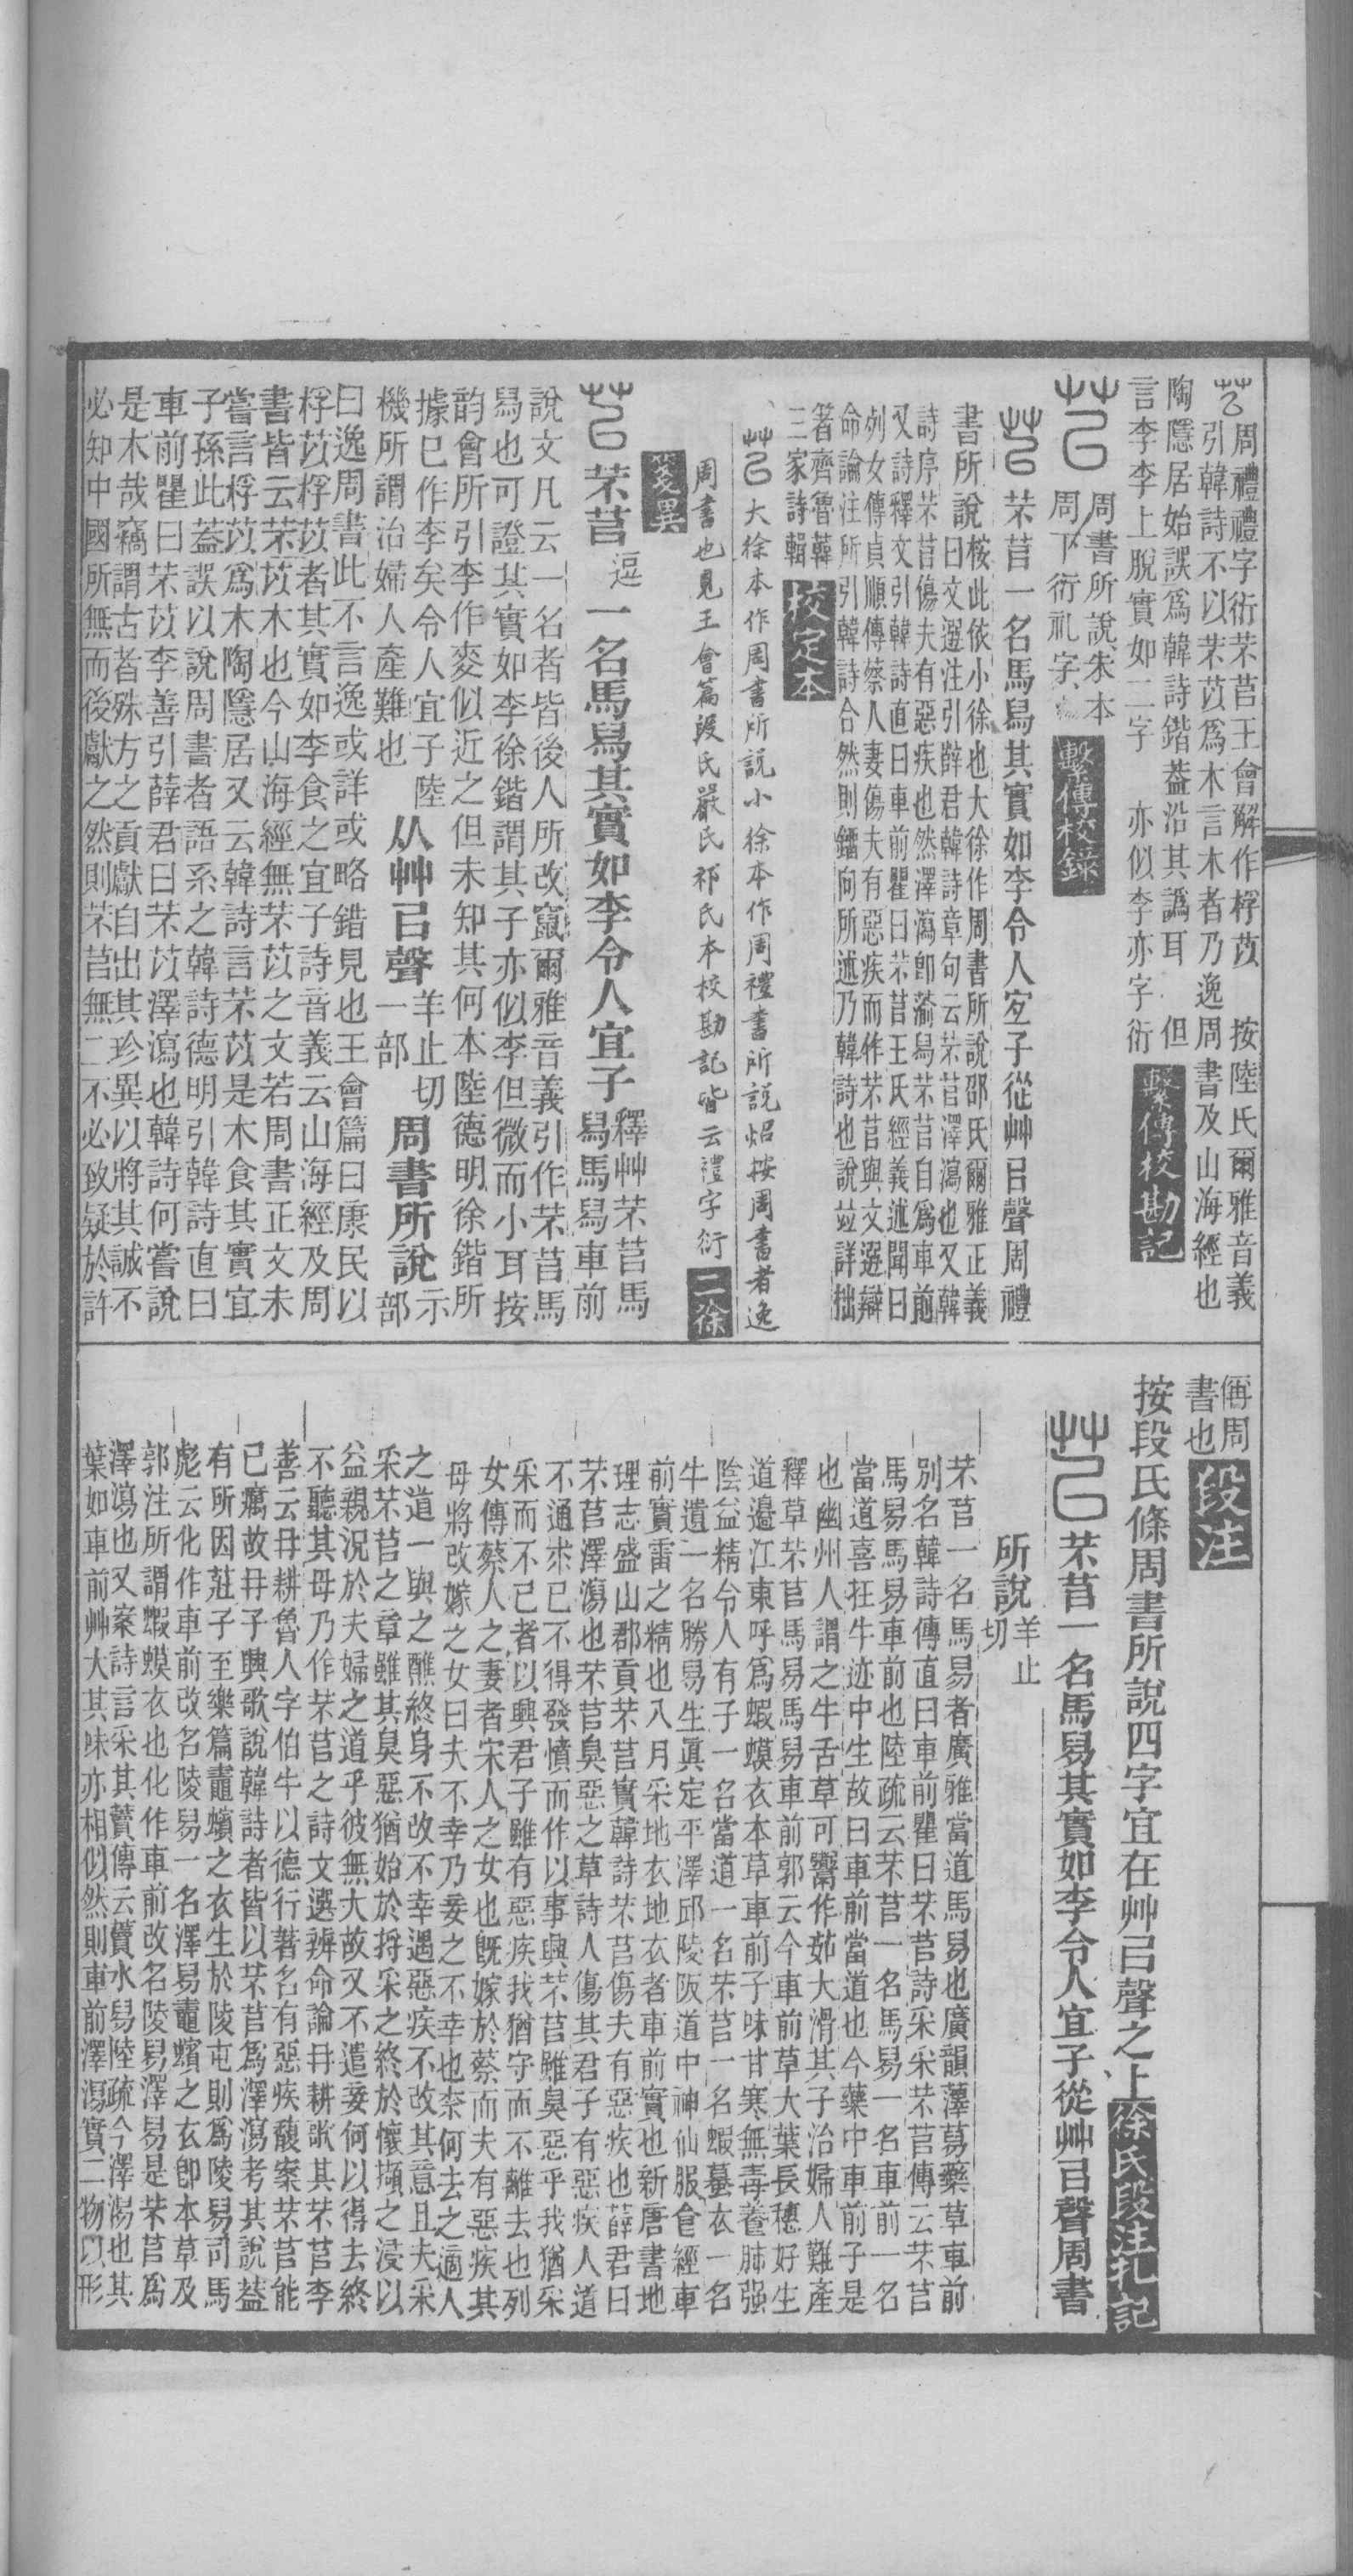 苢 周禮禮字衍芣苢王會解作桴苡　按陸氏爾雅音義
引韓詩不以芣苡爲木言木者乃逸周書及山海經也
陶隱居始誤爲韓詩鍇葢沿其譌耳　但
言李李上脫實如二字　亦似李亦字衍 繫傳校勘記
苢 周書所說朱本
周下衍礼字 繫傳校錄
苢 芣苢一名馬舄其實如李令人宐子從艸㠯聲周禮
書所說 桉此依小徐也大徐作周書所說邵氏爾雅正義
曰文選注引辥君韓詩章句云芣苢澤瀉也又韓
詩序芣苢傷夫有惡疾也然澤瀉卽蕍舄芣苢自爲車前
又詩釋文引韓詩直曰車前瞿曰芣苢王氏經義述聞曰
列女傳貞順傳蔡人妻傷夫有惡疾而作芣苢與文選辯
命論注所引韓詩合然則鐂向所述乃韓詩也說竝詳拙
箸齊魯韓
三家詩輯 校定本
苢 大徐本作周書所説小徐本作周禮書所説炤按周書者逸
周書也見王會篇段氏嚴氏祁氏本校勘記皆云禮字衍 二徐
箋異
苢 芣苢 逗 一名馬舄其實如李令人宜子 釋艸芣苢馬
舄馬舄車前
說文凡云一名者皆後人所改竄爾雅音義引作芣苢馬
舄也可證其實如李徐鍇謂其子亦似李但微而小耳按
韵會所引李作麥似近之但未知其何本陸德明徐鍇所
據已作李矣令人宜子陸
機所謂治婦人產難也 从艸㠯聲 羊止切
一部 周書所說 示部
曰逸周書此不言逸或詳或略錯見也王會篇曰康民以
桴苡桴苡者其實如李食之宜子詩音義云山海經及周
書皆云芣苡木也今山海經無芣苡之文若周書正文未
嘗言桴苡爲木陶隱居又云韓詩言芣苡是木食其實宜
子孫此葢誤以說周書者語系之韓詩德明引韓詩直曰
車前瞿曰芣苡李善引薛君曰芣苡澤瀉也韓詩何嘗說
是木哉竊謂古者殊方之貢獻自出其珍異以將其誠不
必知中國所無而後獻之然則芣苢無二不必致疑於許
偁周
書也 段注
按段氏條周書所說四字宜在艸㠯聲之上 徐氏段注札記
苢 芣苢一名馬舃其實如李令人宜子從艸㠯聲周書
所說 羊止
切
芣苢一名馬舃者廣雅當道馬舃也廣韻藫蒻藥草車前
別名韓詩傳直曰車前瞿曰芣苢詩采采芣苢傳云芣苢
馬舃馬舃車前也陸疏云芣苢一名馬舃一名車前一名
當道喜在牛迹中生故曰車前當道也今藥中車前子是
也幽州人謂之牛舌草可鬻作茹大滑其子治婦人難產
釋草芣苢馬舃馬舃車前郭云今車前草大葉長穗好生
道邊江東呼爲蝦蟆衣本草車前子味甘寒無毒養肺强
陰益精令人有子一名當道一名芣苢一名蝦蟇衣一名
牛遺一名勝舃生眞定平澤邱陵阪道中神仙服食經車
前實雷之精也八月采地衣地衣者車前實也新唐書地
理志盛山郡貢芣苢實韓詩芣苢傷夫有惡疾也薛君曰
芣苢澤瀉也芣苢臭惡之草詩人傷其君子有惡疾人道
不通求已不得發憤而作以事興芣苢雖臭惡乎我猶采
采而不已者以興君子雖有惡疾我猶守而不離去也列
女傳蔡人之妻者宋人之女也旣嫁於蔡而夫有惡疾其
母將改嫁之女曰夫不幸乃妾之不幸也柰何去之適人
之道一與之醮終身不改不幸遇惡疾不改其意且夫采
采芣苢之章雖其臭惡猶始於捋采之終於懷擷之浸以
益親況於夫婦之道乎彼無大故又不遣妾何以得去終
不聽其母乃作芣苢之詩文選辨命論冉耕歌其芣苢李
善云冉耕魯人字伯牛以德行著名有惡疾馥案芣苢能
已癘故冉子興歌說韓詩者皆以芣苢爲澤瀉考其說葢
有所因莊子至樂篇鼃蠙之衣生於陵屯則爲陵舃司馬
彪云化作車前改名陵舃一名澤舃鼃蠙之衣卽本草及
郭注所謂蝦蟆衣也化作車前改名陵舃澤舃是芣苢爲
澤瀉也又案詩言采其藚傳云藚水舃陸疏今澤瀉也其
葉如車前艸大其味亦相似然則車前澤瀉實二物以形